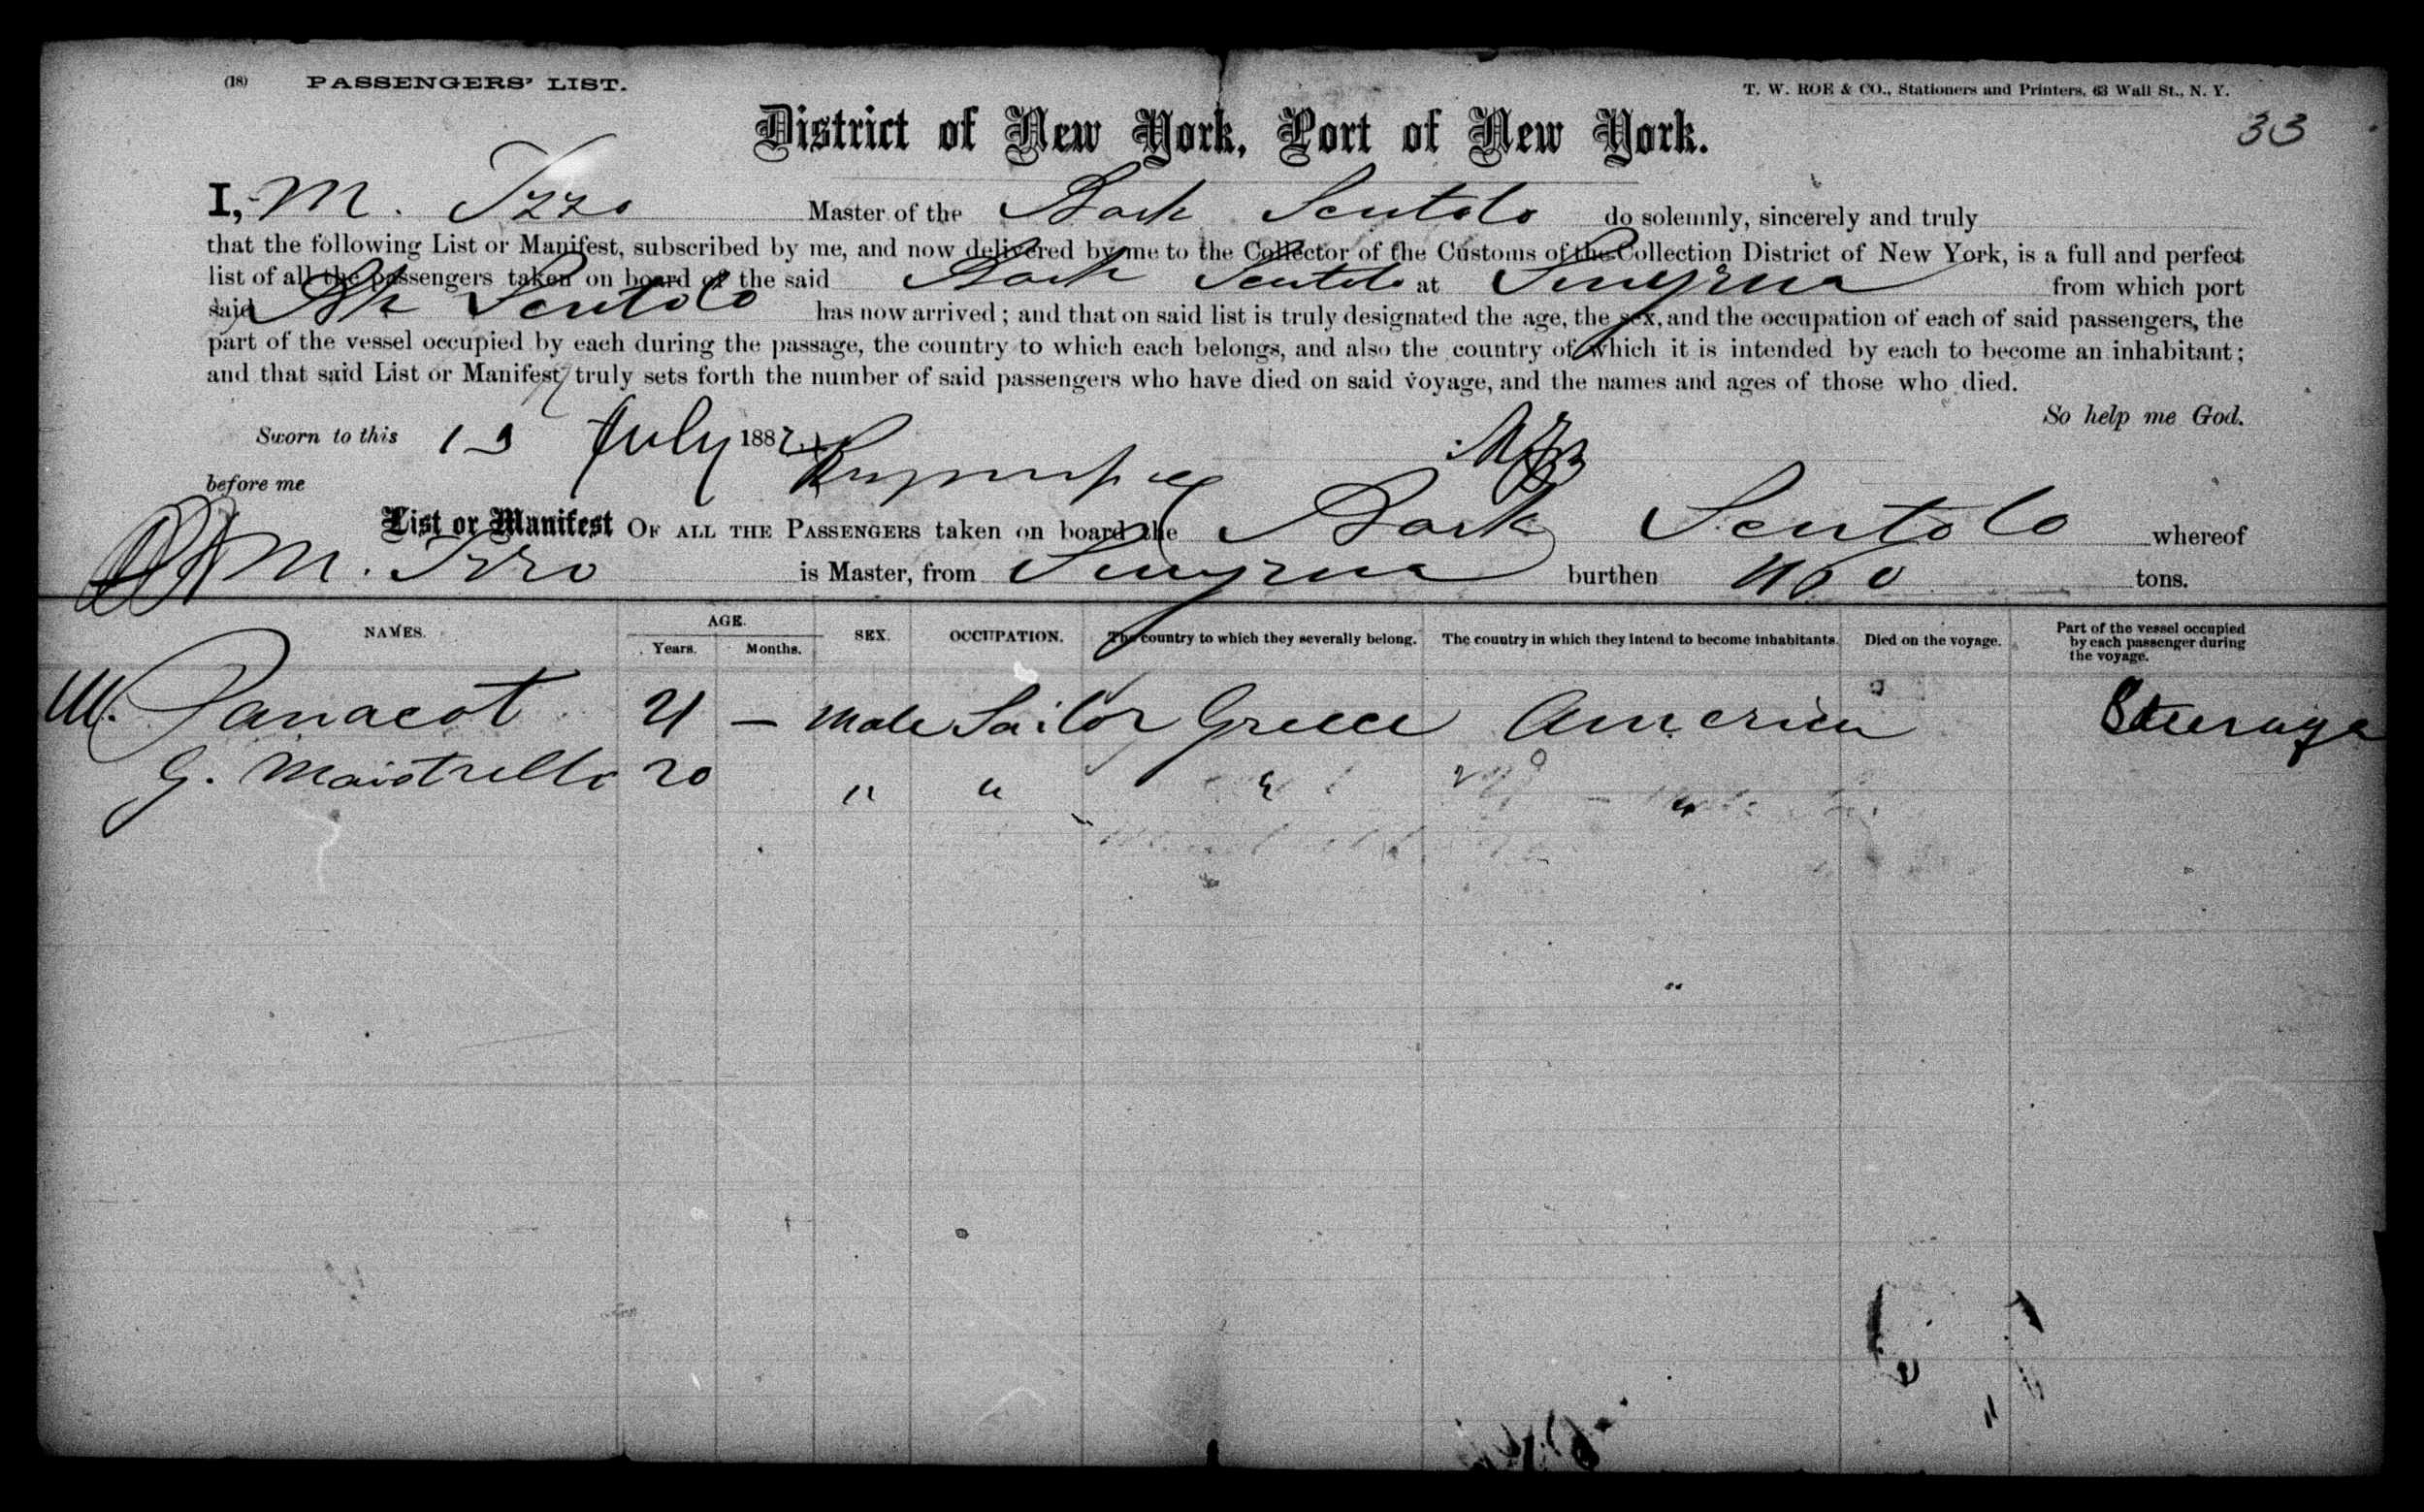 (18) PASSENGERS' LIST.
T. W. ROE & CO., Stationers and Printers, 63 Wall St., N. Y.
33
District of New York, Port of New York.
I, M. Izzo Master of the Bark Scutolo do solemnly, sincerely and truly
that the following List or Manifest, subscribed by me, and now delivered by me to the Collector of the Customs of the Collection District of New York, is a full and perfect
list of all the passengers taken on board of the said Bark Scutolo at Smyrna from which port
said Bk Scutolo has now arrived; and that on said list is truly designated the age, the sex, and the occupation of each of said passengers, the
part of the vessel occupied by each during the passage, the country to which each belongs, and also the country of which it is intended by each to become an inhabitant;
and that said List or Manifest truly sets forth the number of said passengers who have died on said voyage, and the names and ages of those who died.
So help me God.
Sworn to this 13 July 1887
before me
List or Manifest OF ALL THE PASSENGERS taken on board the Bark Scutolo whereof
M. Izzo is Master, from Smyrna burthen 460 tons.
NAMES. AGE. Years. Months. SEX. OCCUPATION. The country to which they severally belong. The country in which they intend to become inhabitants. Died on the voyage. Part of the vessel occupied by each passenger during the voyage.
M. Panacot 21 — Male Sailor Greece America Steerage
G. Maistrello 20 " " " "